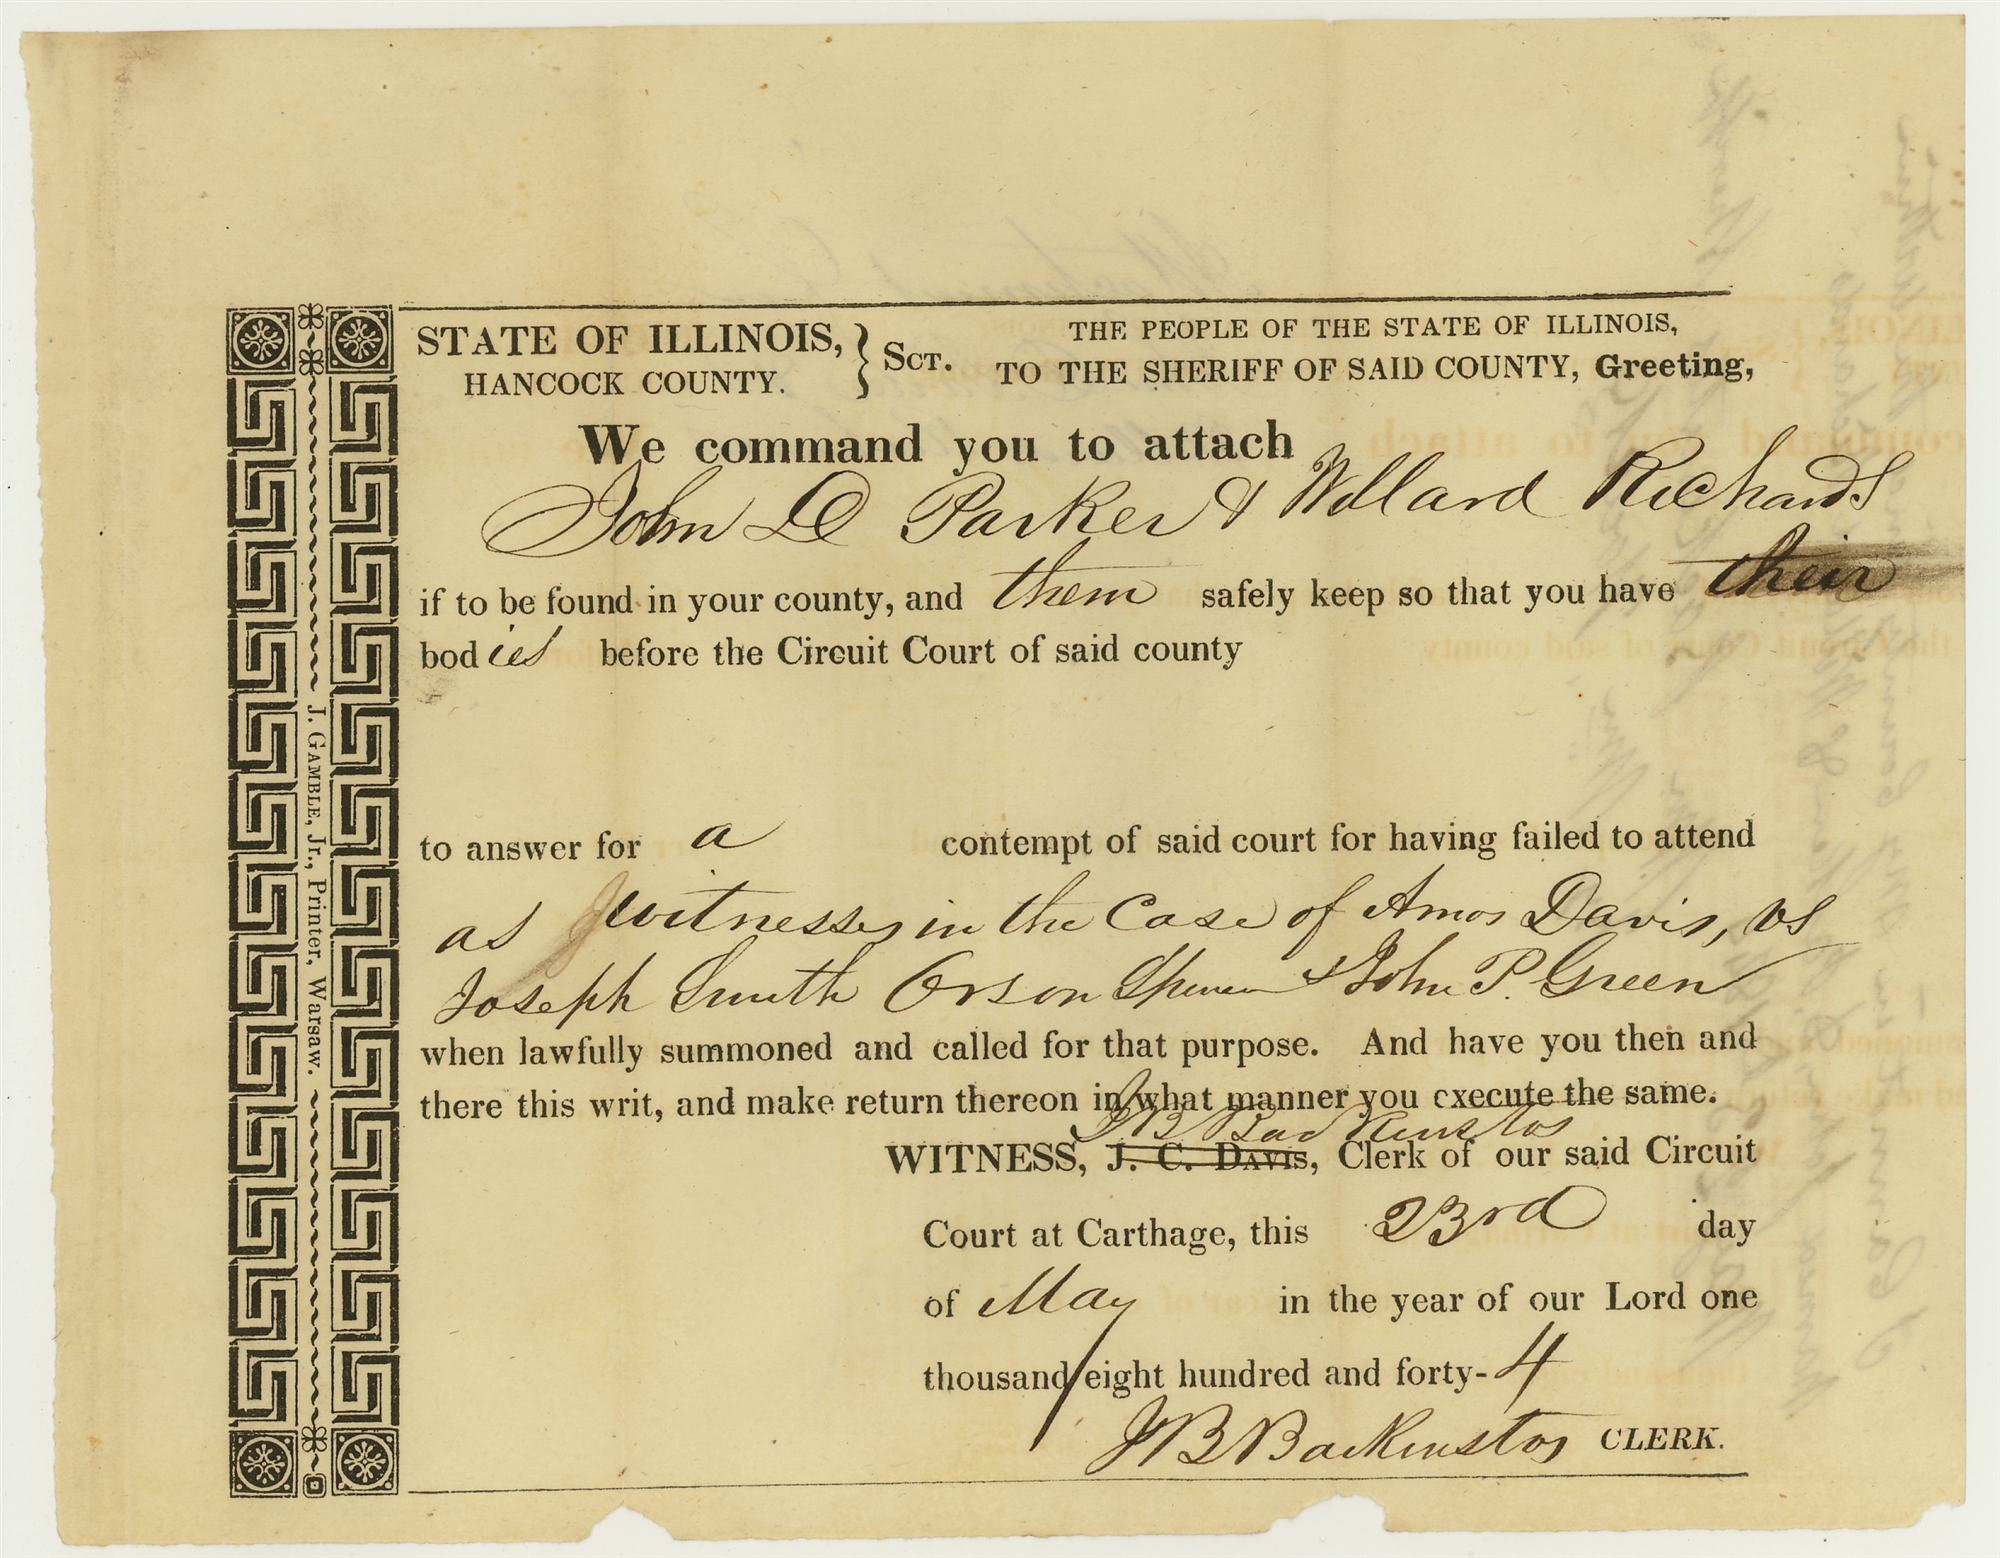 STATE OF ILLINOIS, } Sct. THE PEOPLE OF THE STATE OF ILLINOIS,
HANCOCK COUNTY. TO THE SHERIFF OF SAID COUNTY, Greeting,
We command you to attach
John D Parker & Willard Richards
if to be found in your county, and them safely keep so that you have their
bodies before the Circuit Court of said county
to answer for a contempt of said court for having failed to attend
as witnesses in the Case of Amos Davis, vs
Joseph Smith Orson Spencer & John P. Green
when lawfully summoned and called for that purpose. And have you then and
there this writ, and make return thereon in what manner you execute the same.
J B Backenstos
WITNESS, J. C. Davis, Clerk of our said Circuit
Court at Carthage, this 23rd day
of May in the year of our Lord one
thousand eight hundred and forty-4
J B Backenstos CLERK.
J. Gamble, Jr., Printer, Warsaw.